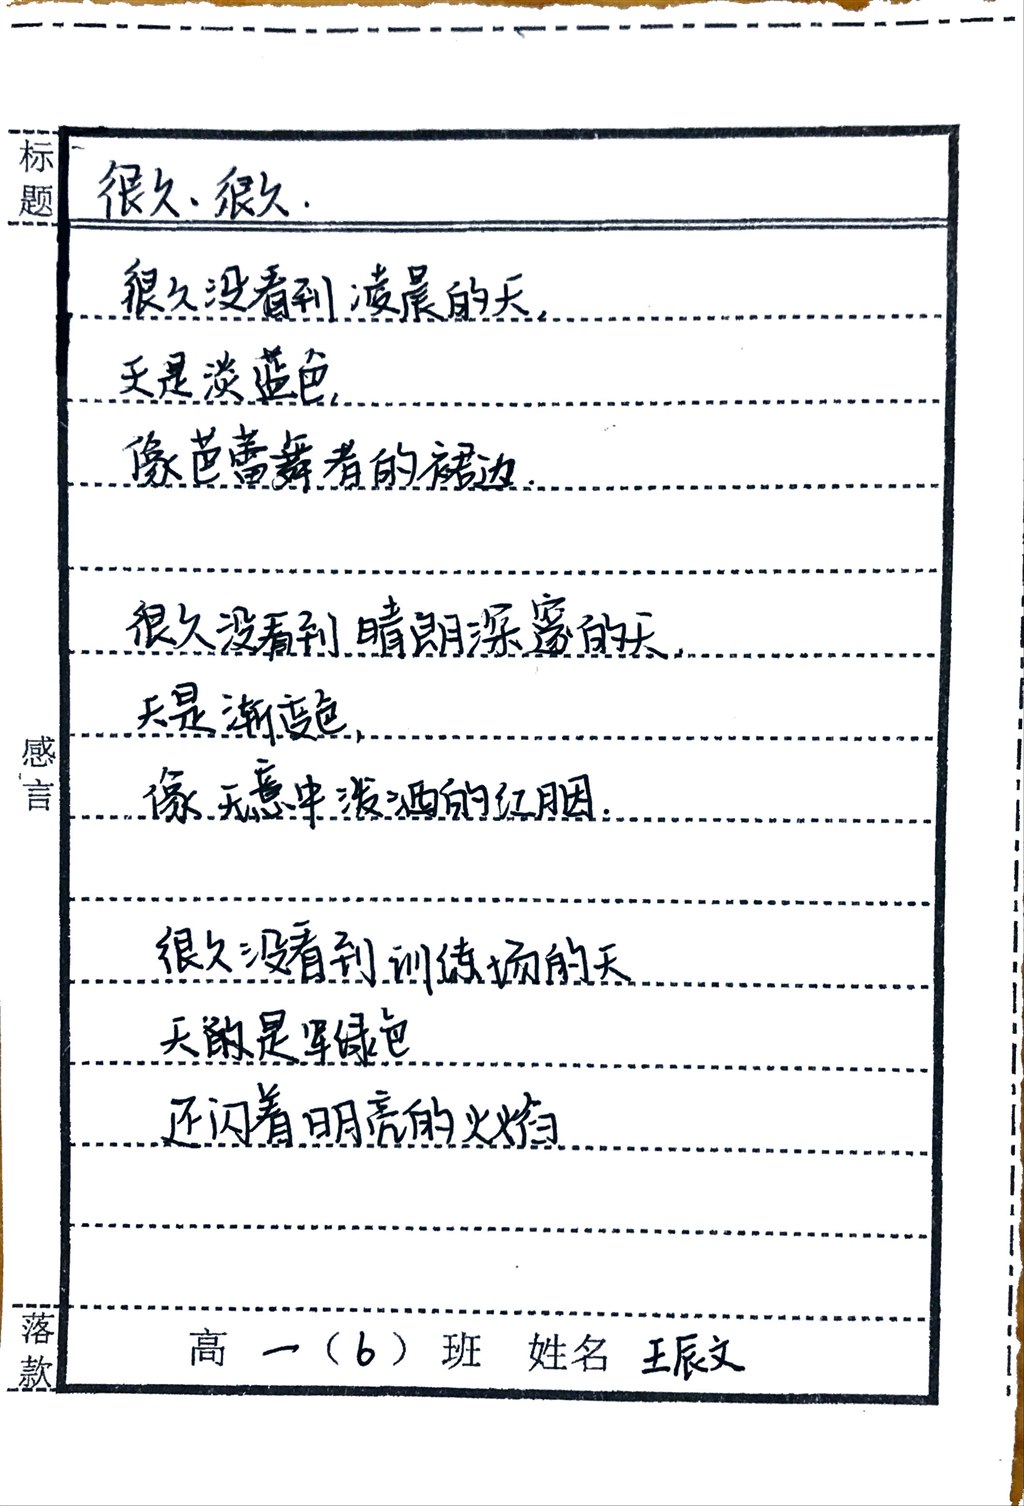 标题
很久、很久.
很久没看到凌晨的天,
天是淡蓝色,
像芭蕾舞者的裙边.
很久没看到晴朗深邃的天,
天是渐变色,
像无意中泼洒的红胭.
感言
很久没看到训练场的天
天的是军绿色
还闪着明亮的火焰
落款
高一(6)班 姓名 王辰文